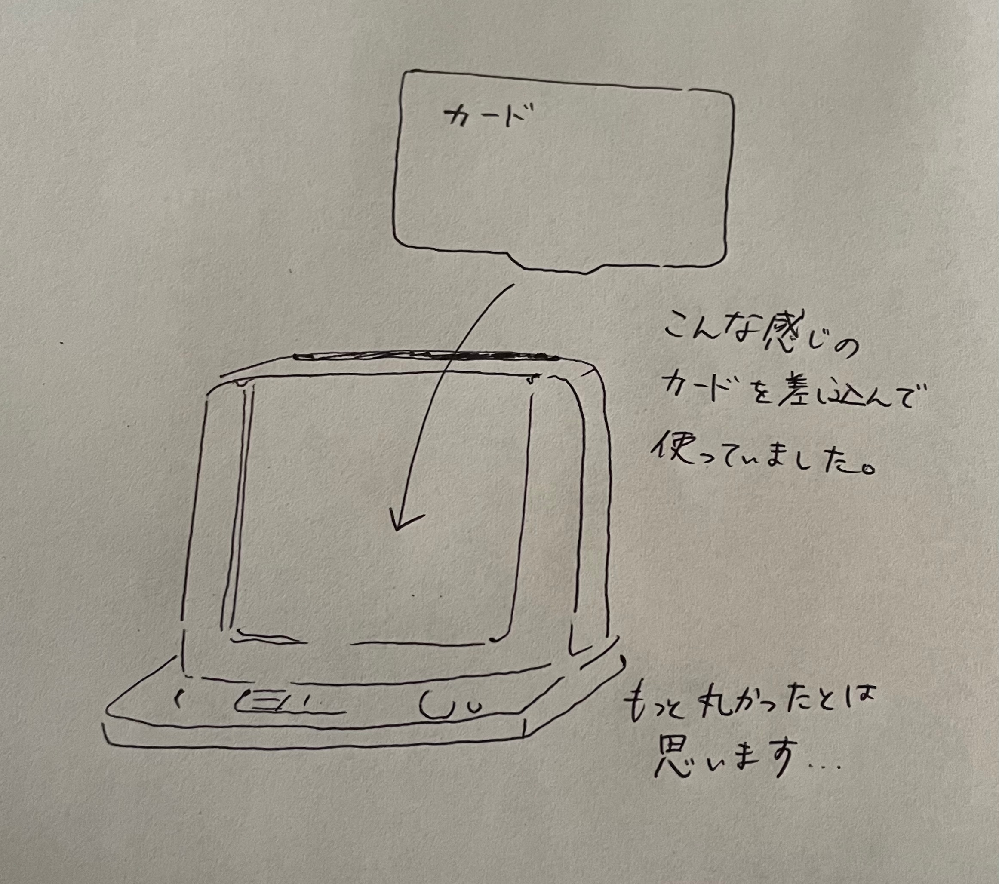 カード
こんな感じの
カードを差し込んで
使っていました。
もっと丸かったとは
思います...